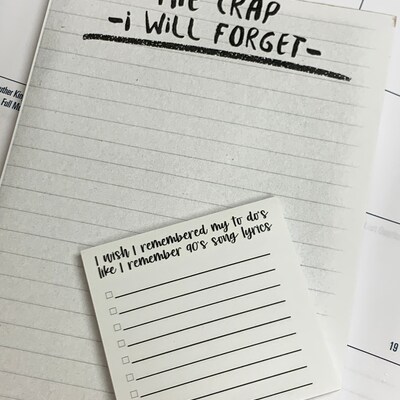 THE CRAP
-i WiLL FORGET-
I wish I remembered my to do's
like I remember 90's song lyrics
Full
19